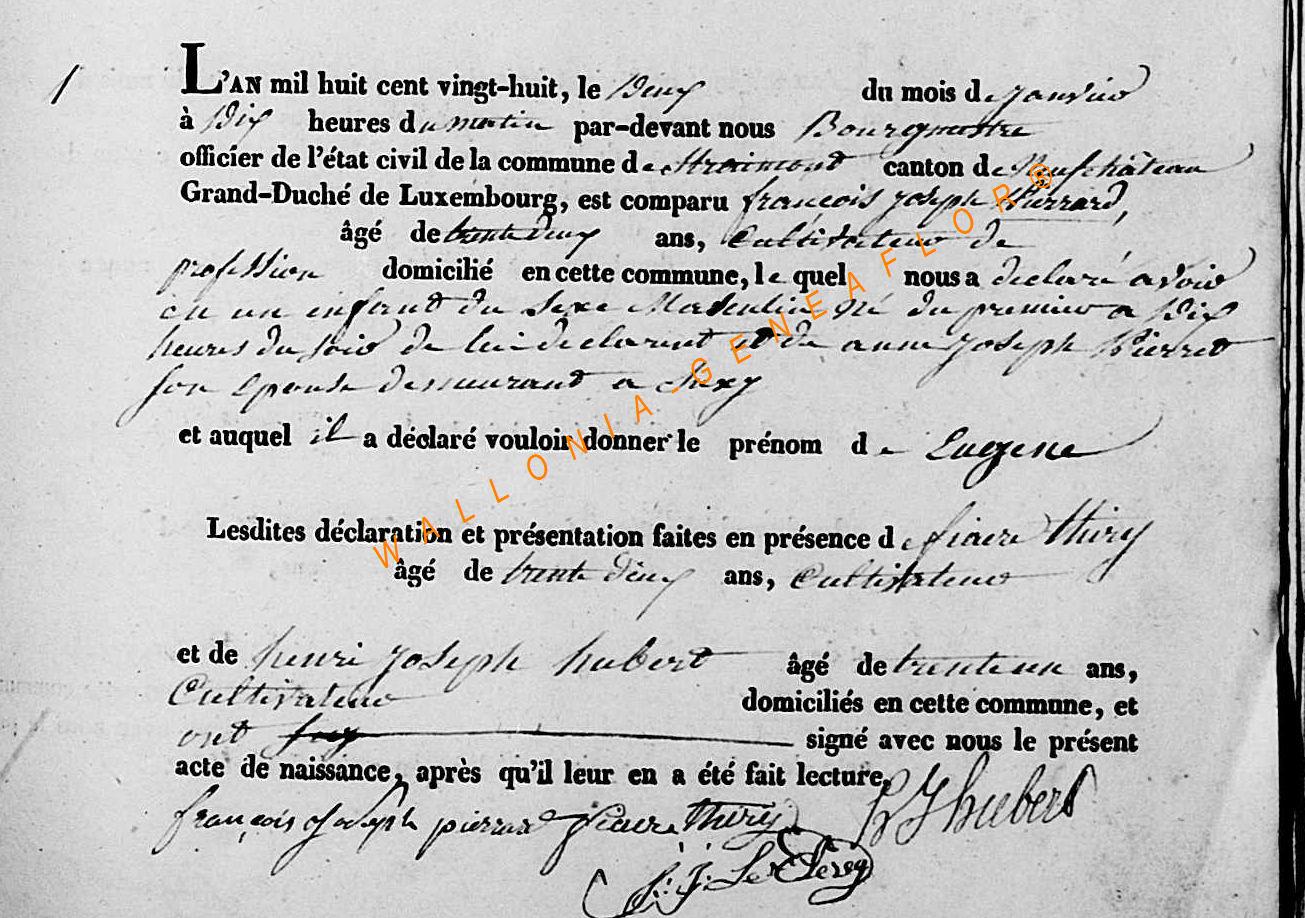 1
L'AN mil huit cent vingt-huit, le Deux du mois de janvier
à Dix heures du matin par-devant nous Bourgmestre
officier de l'état civil de la commune de Straimont canton de Neufchâteau
Grand-Duché de Luxembourg, est comparu françois joseph Pierrard,
âgé de trente deux ans, Cultivateur de
profession domicilié en cette commune, le quel nous a declaré avoir
eu un enfant du Sexe Masculin Né du premier a Dix
heures du soir de lui declarent et de anne joseph Pierret
son epouse demeurant a Suxy
et auquel il a déclaré vouloir donner le prénom de Eugene
Lesdites déclaration et présentation faites en présence de fiacre thiry
âgé de trente deux ans, Cultivateur
et de henri joseph hubert âgé de trente un ans,
Cultivateur domiciliés en cette commune, et
ont signé avec nous le présent
acte de naissance, après qu'il leur en a été fait lecture.
françois joseph pierrard fiacre thiry h J hubert
WALLONIA-GENEAFLOR®